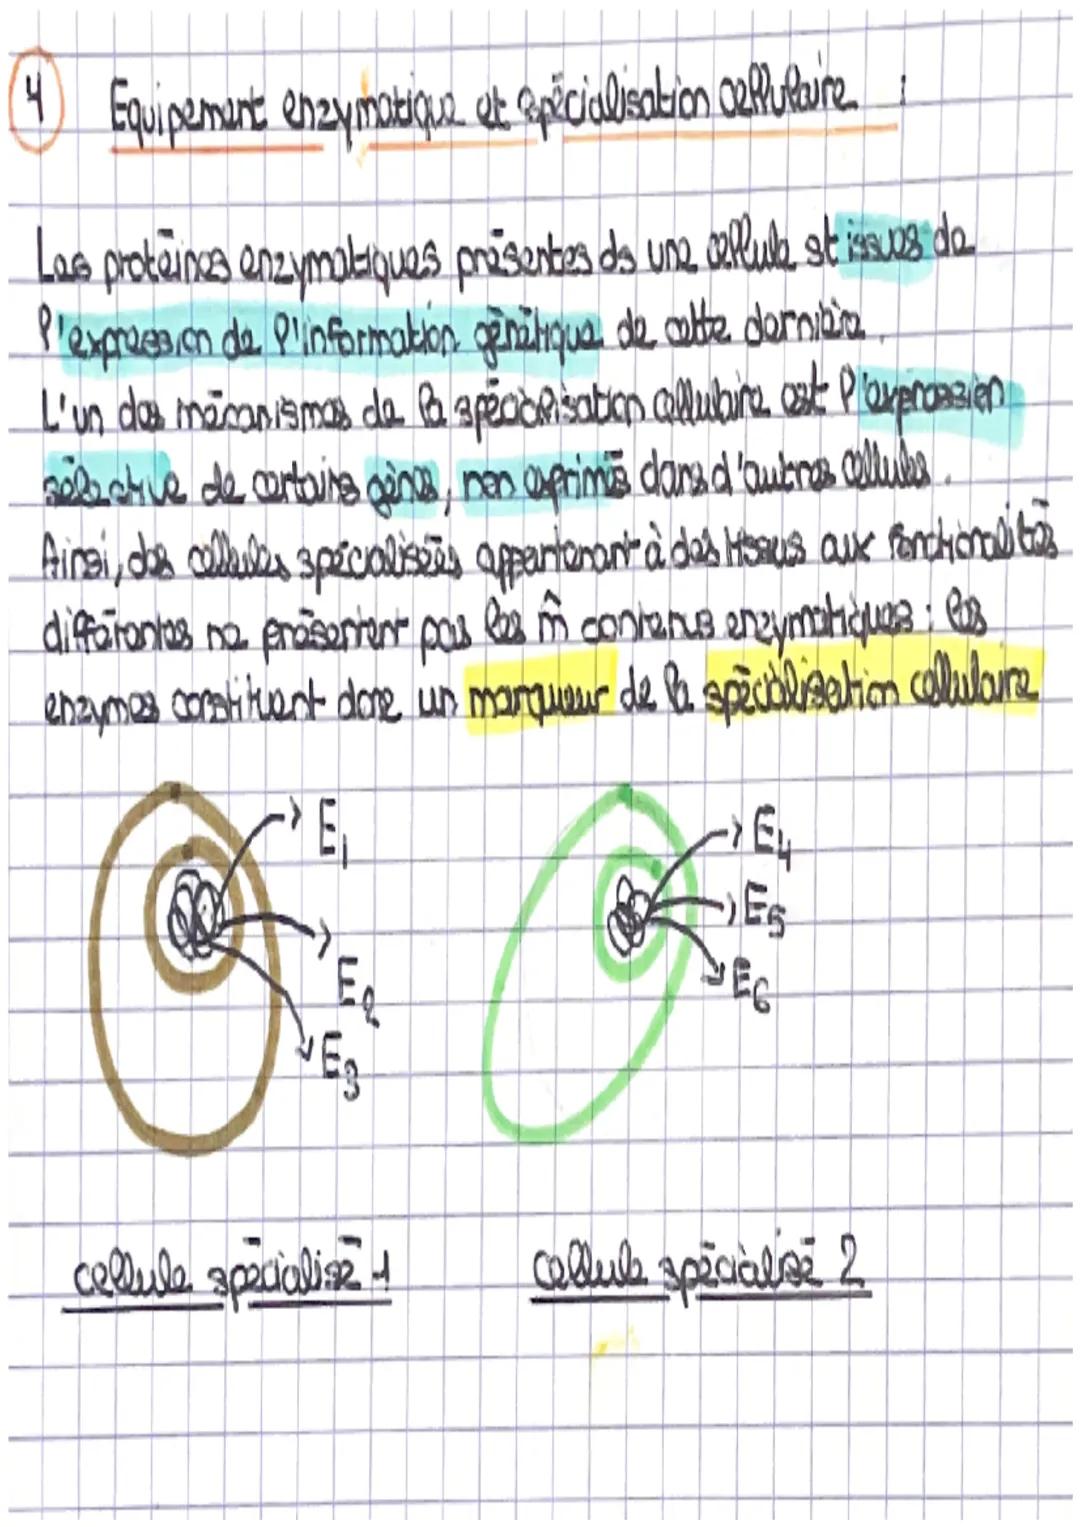 4 Equipement enzymatique et spécialisation cellulaire :
Les protéines enzymatiques présentes ds une cellule st issues de
l'expression de l'information génétique de cette dernière.
L'un des mécanismes de la spécialisation cellulaire est l'expression
sélective de certains gènes, non exprimés dans d'autres cellules.
Ainsi, des cellules spécialisées appartenant à des tissus aux fonctionalités
différentes ne présentent pas les m̂ contenus enzymatiques : les
enzymes constituent donc un marqueur de la spécialisation cellulaire
E1
E2
E3
E4
E5
E6
cellule spécialisé 1
cellule spécialisé 2